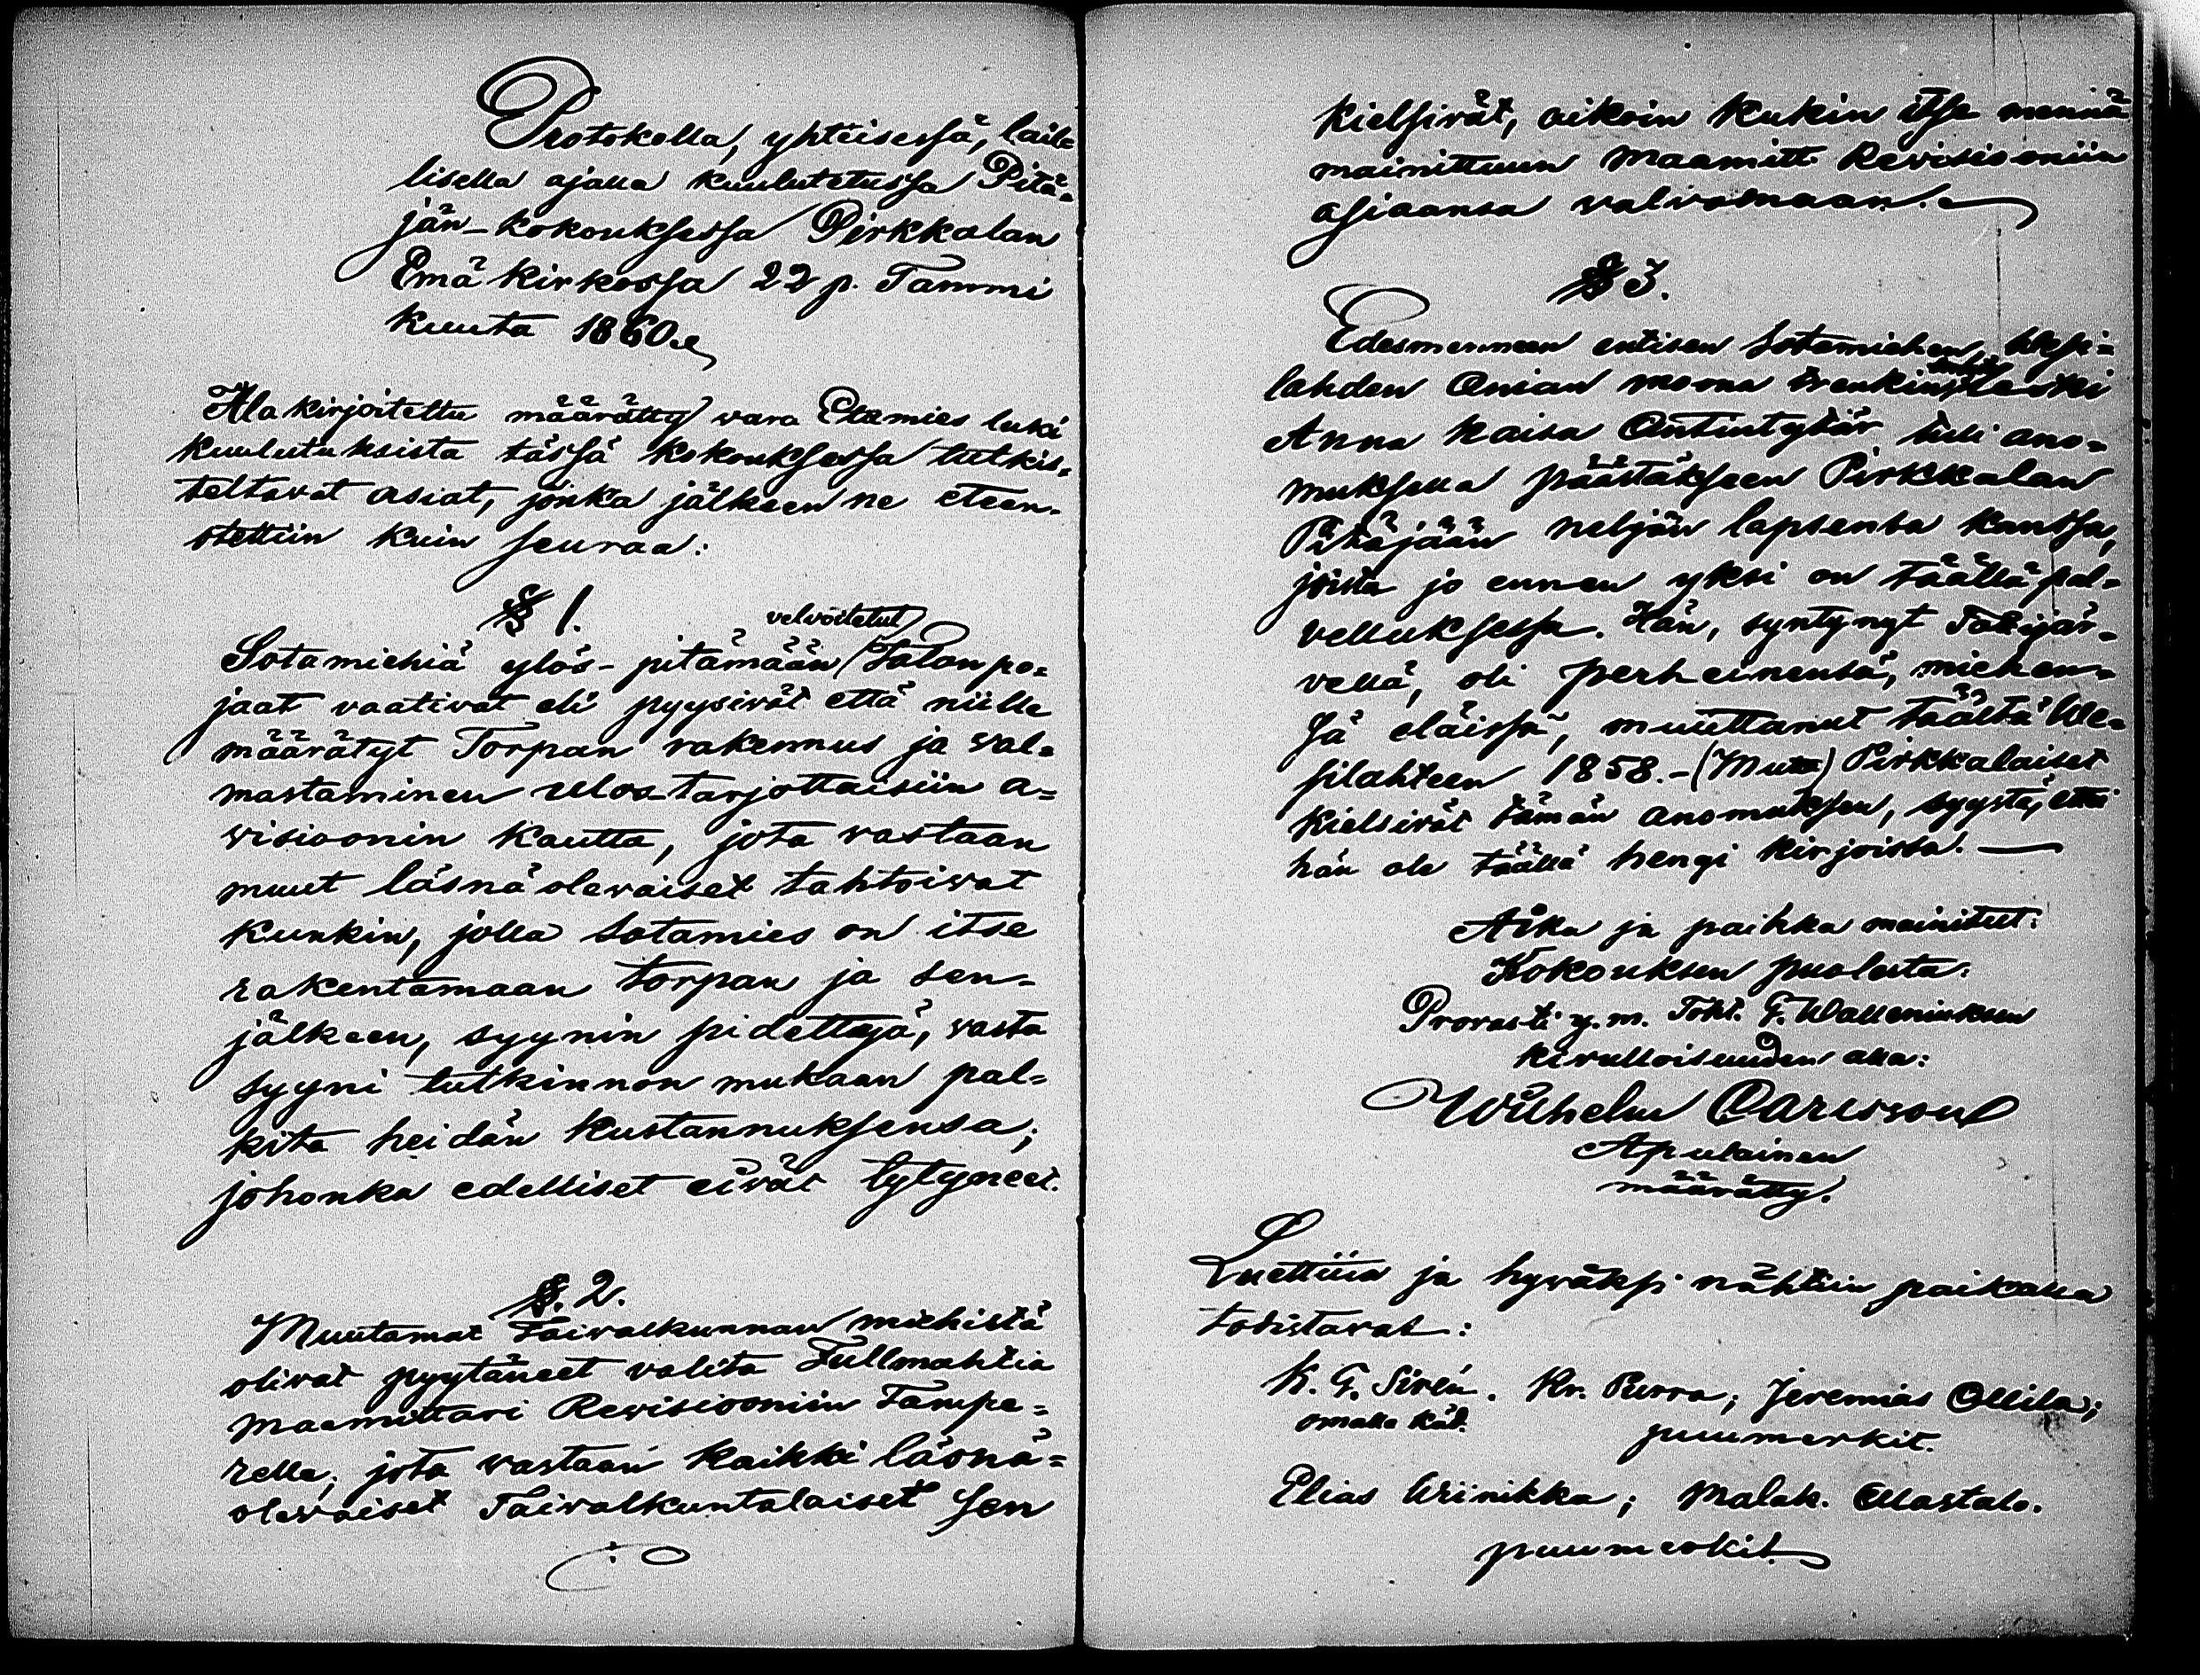 Protokolla, yhteisessä, lail=
lisella ajalla kuulutetussa Pitä=
jän-kokouksessa Pirkkalan
Emäkirkossa 22 p. Tammi
kuuta 1860.
Alakirjoitettu määrätty vara Etumies luki
kuulutuksista tässä kokouksessa tutkis=
teltavat asiat, jonka jälkeen ne eteen-
otettiin kuin seuraa:
§ 1.
velvoitetut
Sotamiehiä ylös-pitämään Talonpo=
jaat vaativat eli pyysivät että niille
määrätyt Torpan rakennus ja val=
mastaminen ulos-tarjottaisiin a=
visioonin kautta, jota vastaan
muut läsnäolevaiset tahtoivat
kunkin, jolla Sotamies on itse
rakentamaan torpan ja sen=
jälkeen, syynin pidettyä, vasta
syyni tutkinnon mukaan pal=
kita heidän kustannuksensa;
johonka edelliset eivät tytyneet.
§. 2.
Muutamat Taivalkunnan miehistä
olivat pyytäneet valita Fullmahtia
maamittari Revisiooniin Tampe=
rella, jota vastaan kaikki läsnä=
olevaiset Taivalkuntalaiset sen
kielsivät, aikoin kukin itse mennä
mainittuun maamitt. Revisiooniin
asiaansa valvomaan.
§ 3.
Edesmenneen entisen Sotamiehen Wesi=
lahden Onian moona trenkin Leski
Anna Kaisa Antintytär tuli ano=
muksella päästäkseen Pirkkalan
Pitäjään neljän lapsensa kanssa,
joista jo ennen yksi on täällä pal=
velluksessa. Hän, syntynyt Tottijär=
vellä, oli perheinensä, miehen=
sä eläissä, muuttanut täältä We=
silahteen 1858.-(Muta) Pirkkalaiset
kielsivät tämän anomuksen, syystä, että
hän ole täällä hengi kirjoissa.
Aika ja paikka mainitut:
Kokouksen puolesta:
Provasti y.m. Toht. G. Walleniuksen
kivulloisuuden alla:
Wilhelm Carlsson
Apulainen
määrätty.
Luettiin ja hyväksi nähtiin paikalla
todistavat:
K. G. Sirén. Kr. Purra; Jeremias Ollila;
omalla käd. puumerkit.
Elias Wiinikka; Malak. Ollastalo.
puumerkit.